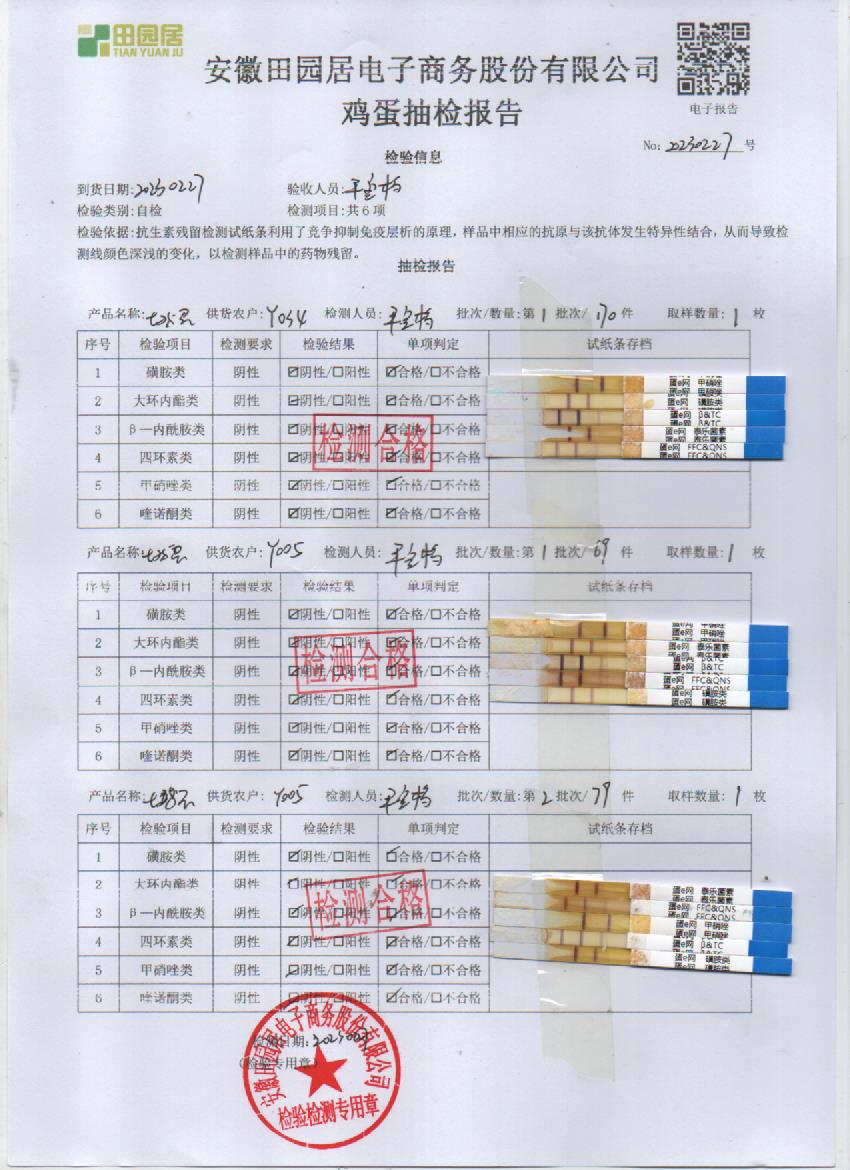 田园居
TIAN YUAN JU
安徽田园居电子商务股份有限公司
鸡蛋抽检报告
电子报告
No: 20230227 号
检验信息
到货日期:20230227 验收人员:
检验类别:自检 检测项目:共6项
检验依据:抗生素残留检测试纸条利用了竞争抑制免疫层析的原理，样品中相应的抗原与该抗体发生特异性结合，从而导致检
测线颜色深浅的变化，以检测样品中的药物残留。
抽检报告
产品名称: 供货农户:Y034 检测人员: 批次/数量:第1批次/170件 取样数量:1枚
序号 检验项目 检测要求 检验结果 单项判定 试纸条存档
1 磺胺类 阴性 ☑阴性/□阳性 ☑合格/□不合格
2 大环内酯类 阴性 ☑阴性/□阳性 ☑合格/□不合格
3 β—内酰胺类 阴性 ☑阴性/□阳性 ☑合格/□不合格
4 四环素类 阴性 ☑阴性/□阳性 ☑合格/□不合格
5 甲硝唑类 阴性 ☑阴性/□阳性 ☑合格/□不合格
6 喹诺酮类 阴性 ☑阴性/□阳性 ☑合格/□不合格
检测合格
蛋e网 甲硝唑
蛋e网 磺胺类
蛋e网 β&TC
蛋e网 泰乐菌素
蛋e网 FFC&QNS
产品名称: 供货农户:Y005 检测人员: 批次/数量:第1批次/69件 取样数量:1枚
序号 检验项目 检测要求 检验结果 单项判定 试纸条存档
1 磺胺类 阴性 ☑阴性/□阳性 ☑合格/□不合格
2 大环内酯类 阴性 ☑阴性/□阳性 ☑合格/□不合格
3 β—内酰胺类 阴性 ☑阴性/□阳性 ☑合格/□不合格
4 四环素类 阴性 ☑阴性/□阳性 ☑合格/□不合格
5 甲硝唑类 阴性 ☑阴性/□阳性 ☑合格/□不合格
6 喹诺酮类 阴性 ☑阴性/□阳性 ☑合格/□不合格
检测合格
蛋e网 甲硝唑
蛋e网 泰乐菌素
蛋e网 β&TC
蛋e网 FFC&QNS
蛋e网 磺胺类
产品名称: 供货农户:Y005 检测人员: 批次/数量:第2批次/79件 取样数量:1枚
序号 检验项目 检测要求 检验结果 单项判定 试纸条存档
1 磺胺类 阴性 ☑阴性/□阳性 ☑合格/□不合格
2 大环内酯类 阴性 ☑阴性/□阳性 ☑合格/□不合格
3 β—内酰胺类 阴性 ☑阴性/□阳性 ☑合格/□不合格
4 四环素类 阴性 ☑阴性/□阳性 ☑合格/□不合格
5 甲硝唑类 阴性 ☑阴性/□阳性 ☑合格/□不合格
6 喹诺酮类 阴性 ☑阴性/□阳性 ☑合格/□不合格
检测合格
蛋e网 泰乐菌素
蛋e网 FFC&QNS
蛋e网 甲硝唑
蛋e网 β&TC
蛋e网 磺胺类
检测日期:
(检验专用章)
安徽田园居电子商务股份有限公司
检验检测专用章